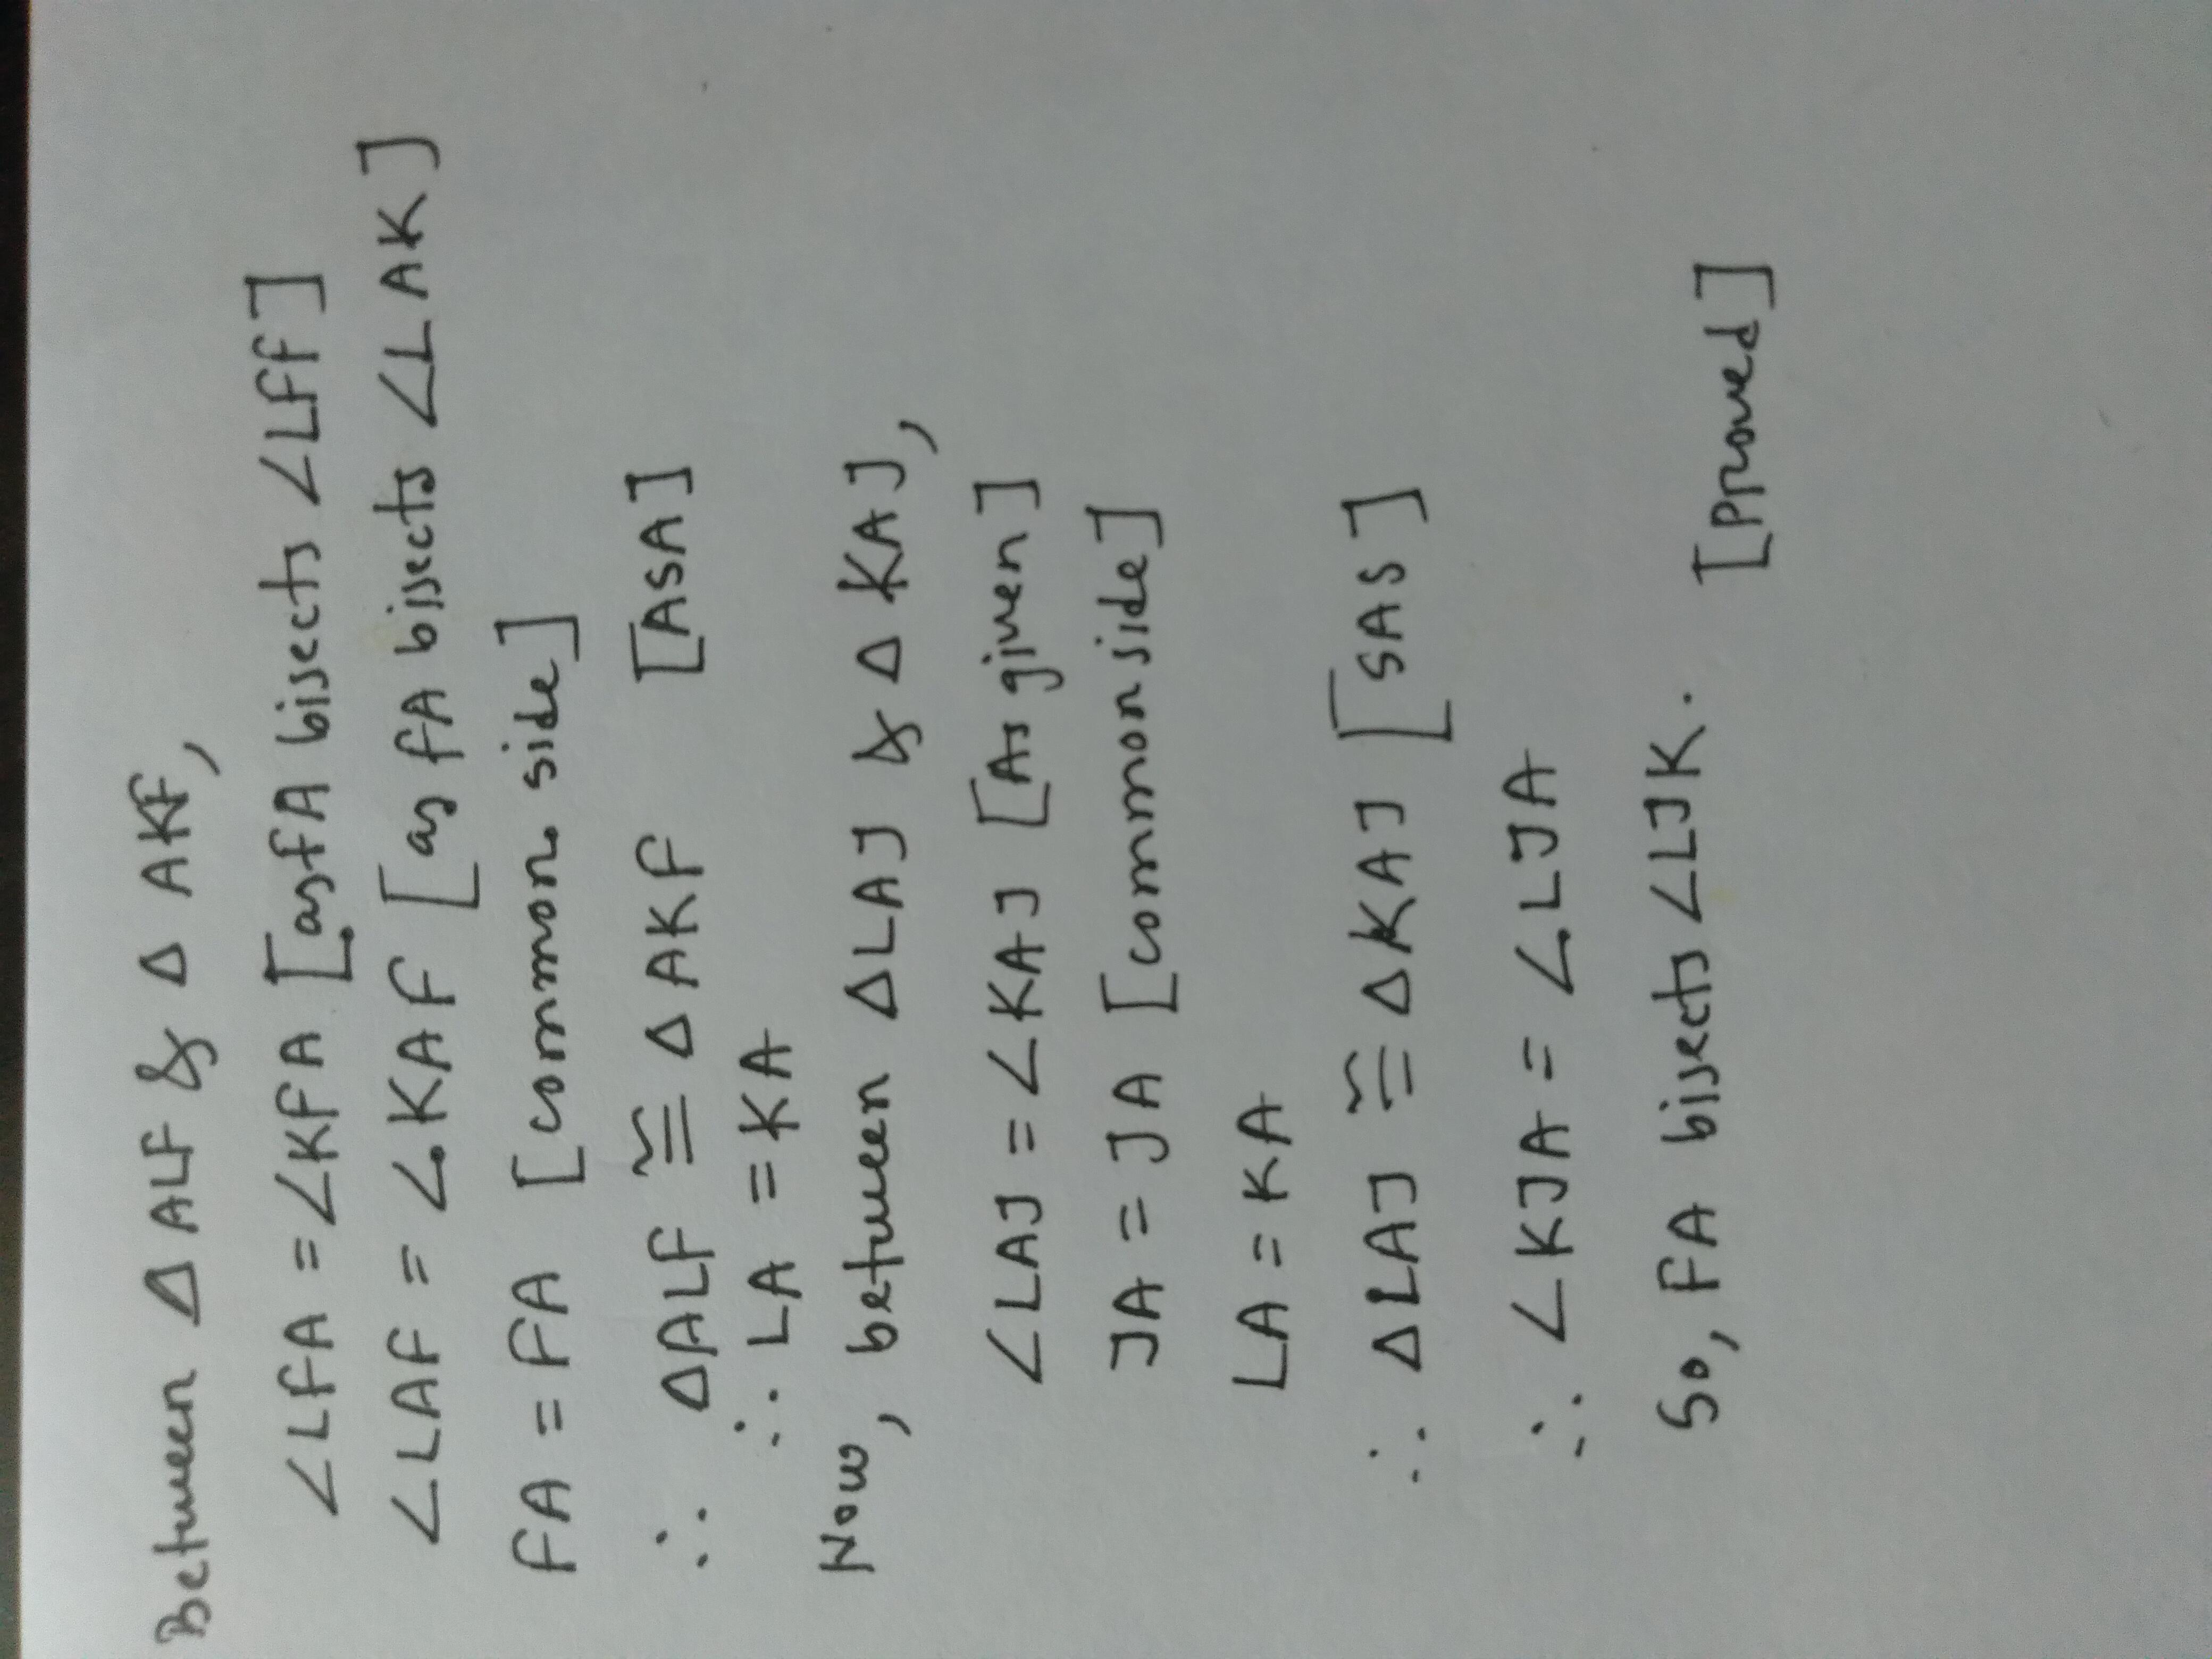 Between Δ ALF & Δ AKF,
∠LFA = ∠KFA [as FA bisects ∠LFF]
∠LAF = ∠KAF [as FA bisects ∠LAK]
FA = FA [common side]
∴ ΔALF ≅ Δ AKF [ASA]
∴ LA = KA
Now, between ΔLAJ & Δ KAJ,
∠LAJ = ∠KAJ [As given]
JA = JA [common side]
LA = KA
∴ ΔLAJ ≅ ΔKAJ [SAS]
∴ ∠KJA = ∠LJA
So, FA bisects ∠LJK. [Proved]